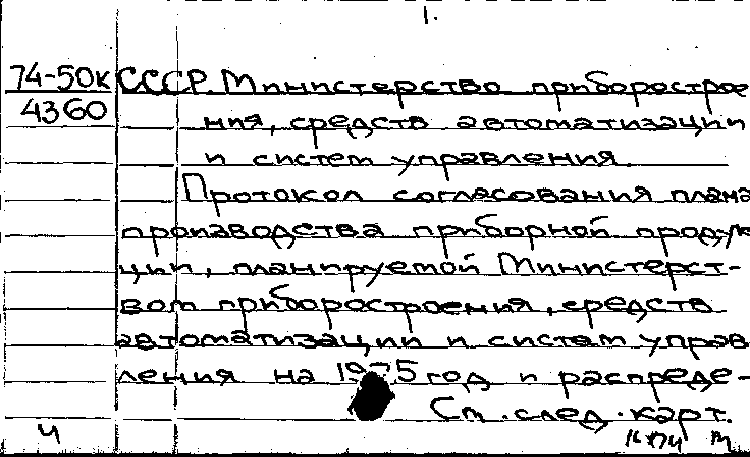 1.
74-50к СССР. Министерство приборострое
4360 ния, средств автоматизации
и систем управления.
Протокол согласования плана
производства приборной продук
ции, планируемой Министерст-
вом приборостроения, средств
автоматизации и систем управ
ления на 1975 год и распреде-
См. след. карт.
ч